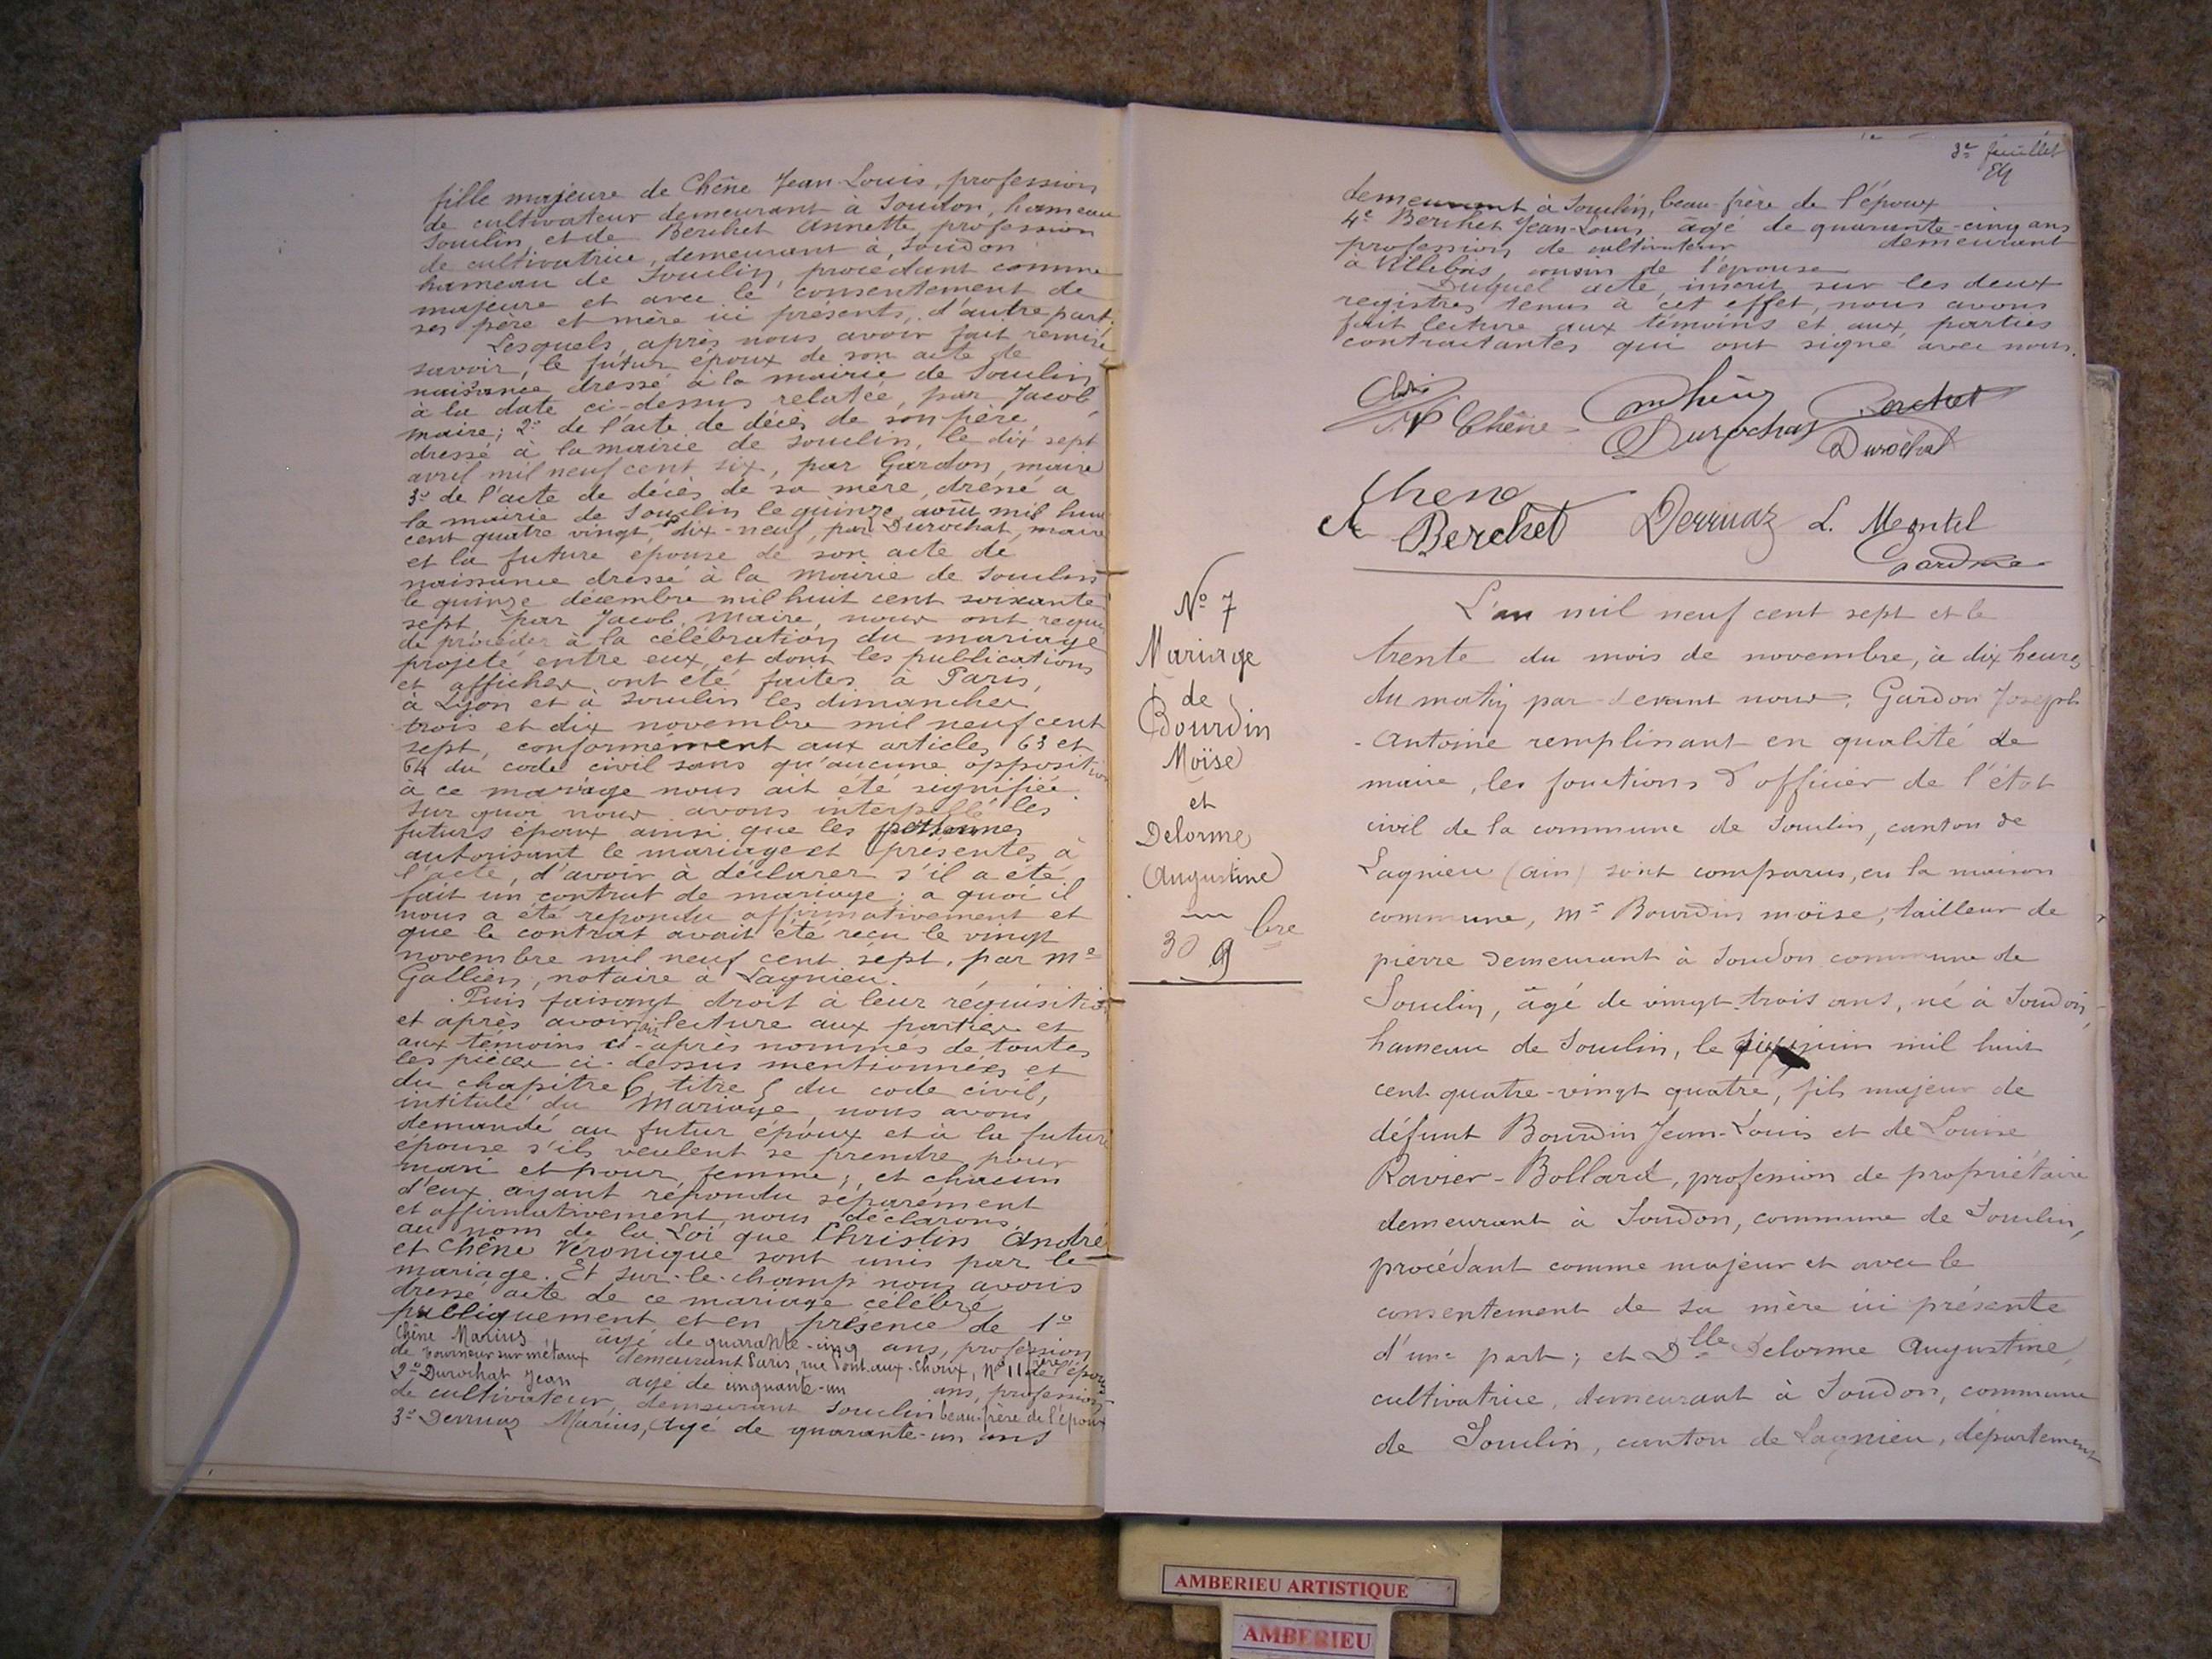 fille majeure de Chêne Jean-Louis, profession
de cultivateur demeurant à Soudon, hameau
Souclin, et de Berchet Annette, profession
de cultivatrice, demeurant à Soudon
hameau de Souclin, procédant comme
majeure et avec le consentement de
ses père et mère ici présents, d'autre part.
Lesquels, après nous avoir fait remise
savoir, le futur époux de son acte de
naissance dressé à la mairie de Souclin
à la date ci-dessus relatée, par Jacob,
maire; 2º de l'acte de décès de son père,
dressé à la mairie de Souclin, le dix sept
avril mil neuf cent six, par Gardon, maire
3º de l'acte de décès de sa mère, dressé a
la mairie de Souclin le quinze août mil huit
cent quatre vingt dix-neuf, par Durochat, maire
et la future epouse de son acte de
naissance dressé à la mairie de Souclin
le quinze décembre mil huit cent soixante
sept, par Jacob, Maire, nous ont requis
de procéder à la célébration du mariage
projeté entre eux, et dont les publications
et affiches ont été faites à Paris,
à Lyon et à Souclin les dimanches
trois et dix novembre mil neuf cent
sept, conformément aux articles 63 et
64 du code civil sans qu'aucune opposition
à ce mariage nous ait été signifiée.
Sur quoi nous avons interpellé les
futurs époux ainsi que les personnes
autorisant le mariage et présentes à
l'acte, d'avoir à déclarer s'il a été
fait un contrat de mariage; a quoi il
nous a été repondu affirmativement et
que le contrat avait été reçu le vingt
novembre mil neuf cent sept, par Me
Gallien, notaire à Lagnieu.
Puis faisant droit à leur réquisition
et après avoir fait lecture aux parties et
aux témoins ci-après nommés de toutes
les pièces ci-dessus mentionnées et
du chapitre 6, titre 5 du code civil,
intitulé du Mariage, nous avons
demandé au futur époux et à la future
épouse s'ils veulent se prendre pour
mari et pour femme; et chacun
d'eux ayant répondu séparément
et affirmativement, nous déclarons,
au nom de la Loi que Christin André
et Chêne Véronique sont unis par le
mariage. Et sur-le-champ nous avons
dressé acte de ce mariage célébré
publiquement et en présence de 1º
Chêne Marius âgé de quarante-cinq ans, profession
de tourneur sur métaux demeurant Paris, rue Pont-aux-Choux, Nº 11 frère de l'épouse
2º Durochat Jean agé de cinquante-un ans, profession
de cultivateur, demeurant Souclin beau-frère de l'époux
3º Derruaz Marius, âgé de quarante-un ans
3e feuillet
demeurant à Souclin, beau-frère de l'époux
4º Berchet Jean-Louis âgé de quarante-cinq ans
profession de cultivateur demeurant
à Villebois, cousin de l'épouse
Duquel acte, inscrit sur les deux
registres tenus à cet effet, nous avons
fait lecture aux témoins et aux parties
contractantes qui ont signé avec nous.
Chêne Berchet
Durochat Durochat
Chene
Berchet Derruaz L. Montel
Gardon
Nº 7
Mariage
de
Bourdin
Moïse
et
Delorme
Augustine
30 9bre
L'an mil neuf cent sept et le
trente du mois de novembre, à dix heures
du matin par-devant nous, Gardon Joseph
-Antoine remplissant en qualité de
maire, les fonctions d'officier de l'état
civil de la commune de Souclin, canton de
Lagnieu (Ain) sont comparus, en la maison
commune, Mr Bourdin Moïse, tailleur de
pierre demeurant à Soudon commune de
Souclin, âgé de vingt-trois ans, né à Soudon,
hameau de Souclin, le juin mil huit
cent quatre-vingt quatre, fils majeur de
défunt Bourdin Jean-Louis et de Louise
Ravier-Bollard, profession de propriétaire
demeurant à Soudon, commune de Souclin,
procédant comme majeur et avec le
consentement de sa mère ici présente
d'une part; et Dlle Delorme Augustine,
cultivatrice, demeurant à Soudon, commune
de Souclin, canton de Lagnieu, département
AMBERIEU ARTISTIQUE
AMBERIEU